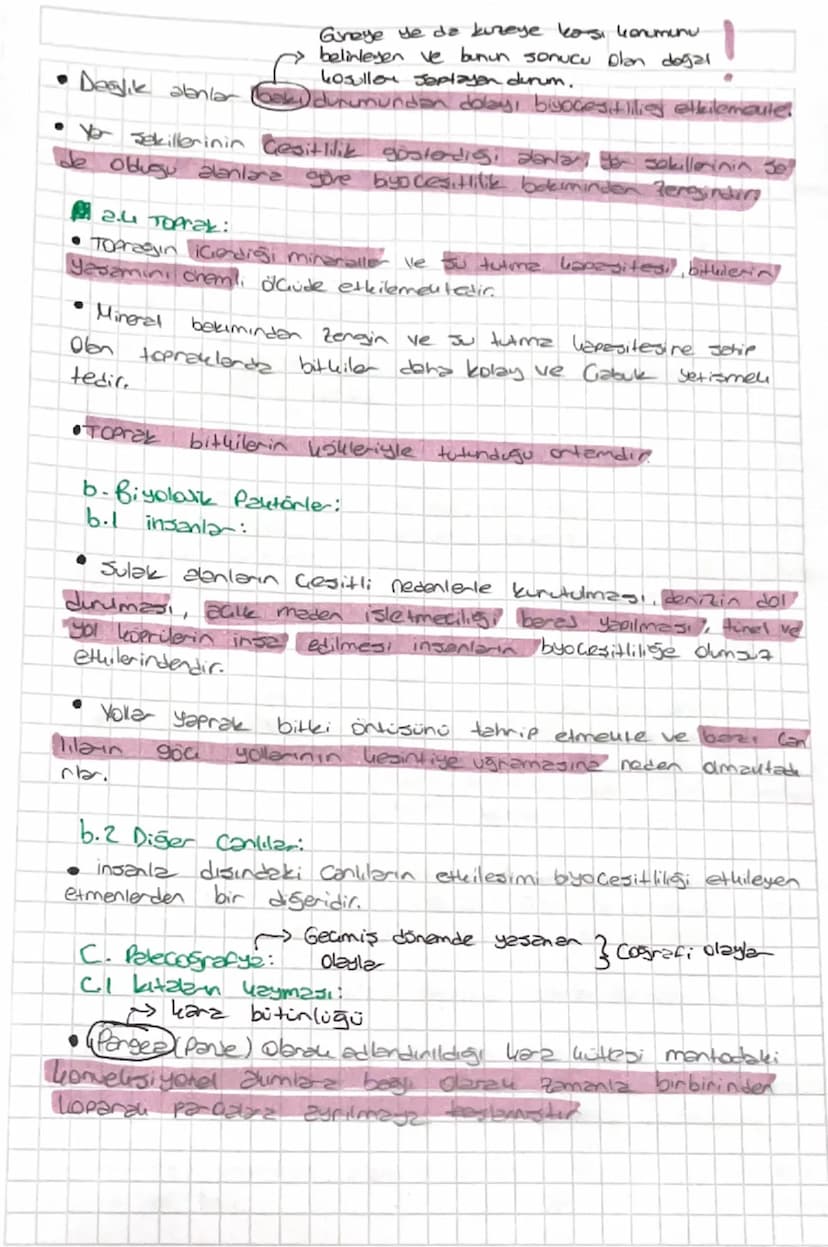 Güneye ya da kuzeye karşı konumunu
belirleyen ve bunun sonucu olan doğal
koşulları saptayan durum. !
• Dağlık alanlar bakı durumundan dolayı biyoçeşitliliği etkilemekte.
• Yer şekillerinin çeşitlilik gösterdiği alanlar, yer şekillerinin sa
de olduğu alanlara göre biyoçeşitlilik bakımından zengindir.
a.4 Toprak:
• Toprağın içerdiği mineraller ve su tutma kapasitesi, bitkilerin
yaşamını önemli ölçüde etkilemektedir.
• Mineral bakımından zengin ve su tutma kapasitesine sahip
olan topraklarda bitkiler daha kolay ve çabuk yetişmek
tedir.
• Toprak bitkilerin kökleriyle tutunduğu ortamdır.
b. Biyolojik Faktörler:
b.1 insanlar:
• Sulak alanların çeşitli nedenlerle kurutulması, denizin dol
durulması, açık maden işletmeciliği baraj yapılması, tünel ve
yol köprülerin inşa edilmesi insanların byoçeşitliliğe olumsuz
etkilerindendir.
• Yollar yaprak bitki örtüsünü tahrip etmekte ve bazı can
lıların göç yollarının kesintiye uğramasına neden olmaktadı
rlar.
b.2 Diğer Canlılar:
• insanla dışındaki canlıların etkileşimi byoçeşitliliği etkileyen
etmenlerden bir diğeridir.
C. Paleocoğrafya: → Geçmiş dönemde yaşanan olaylar } Coğrafi olaylar
C.1 kıtaların kayması:
→ kara bütünlüğü
• Pangea (Panje) olarak adlandırıldığı kara kütlesi mantodaki
konveksiyonel akımlara bağlı olarak zamanla birbirinden
koparak parçalara ayrılmaya başlamıştır.